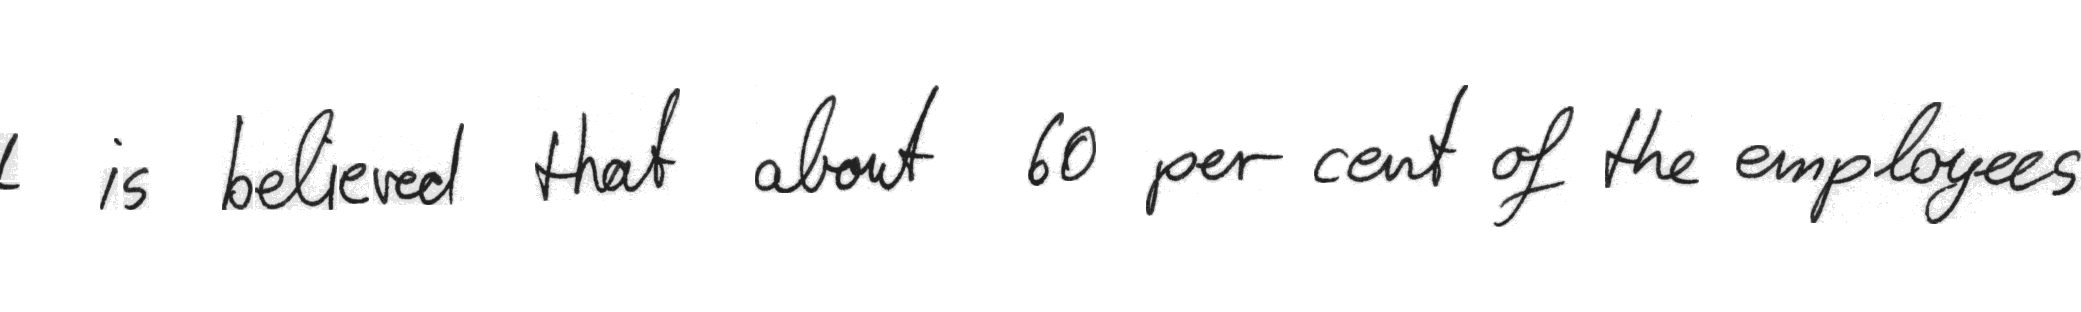 is believed that about 60 per cent of the employees